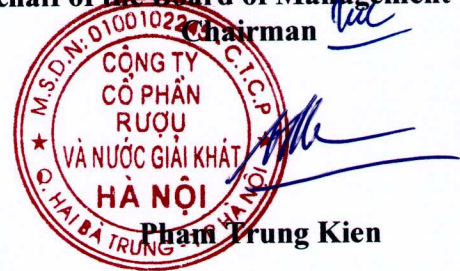 half of the Board of Management
Chairman
M.S.D.N: 01001022
C.T.C.P
CÔNG TY
CỔ PHẦN
RƯỢU
VÀ NƯỚC GIẢI KHÁT
HÀ NỘI
Q. HAI BÀ TRƯNG
HÀ NỘI
Pham Trung Kien